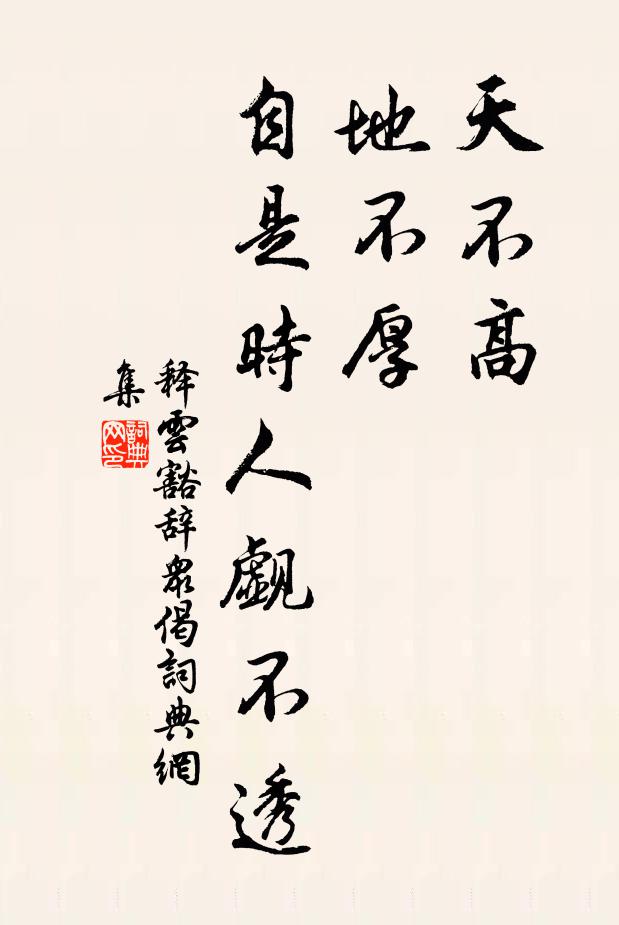 天不高
地不厚
自是時人覰不透
释雲豁辞衆偈詞典網
集
詞典
网印